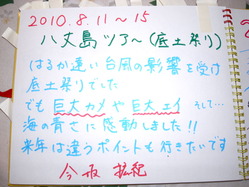 2010.8.11〜15
八丈島ツアー(底土祭り)
はるか遠い台風の影響を受け
底土祭りでした
でも巨大カメや巨大エイ そして…
海の青さに感動しました!!
来年は違うポイントも行きたいです
今
紀